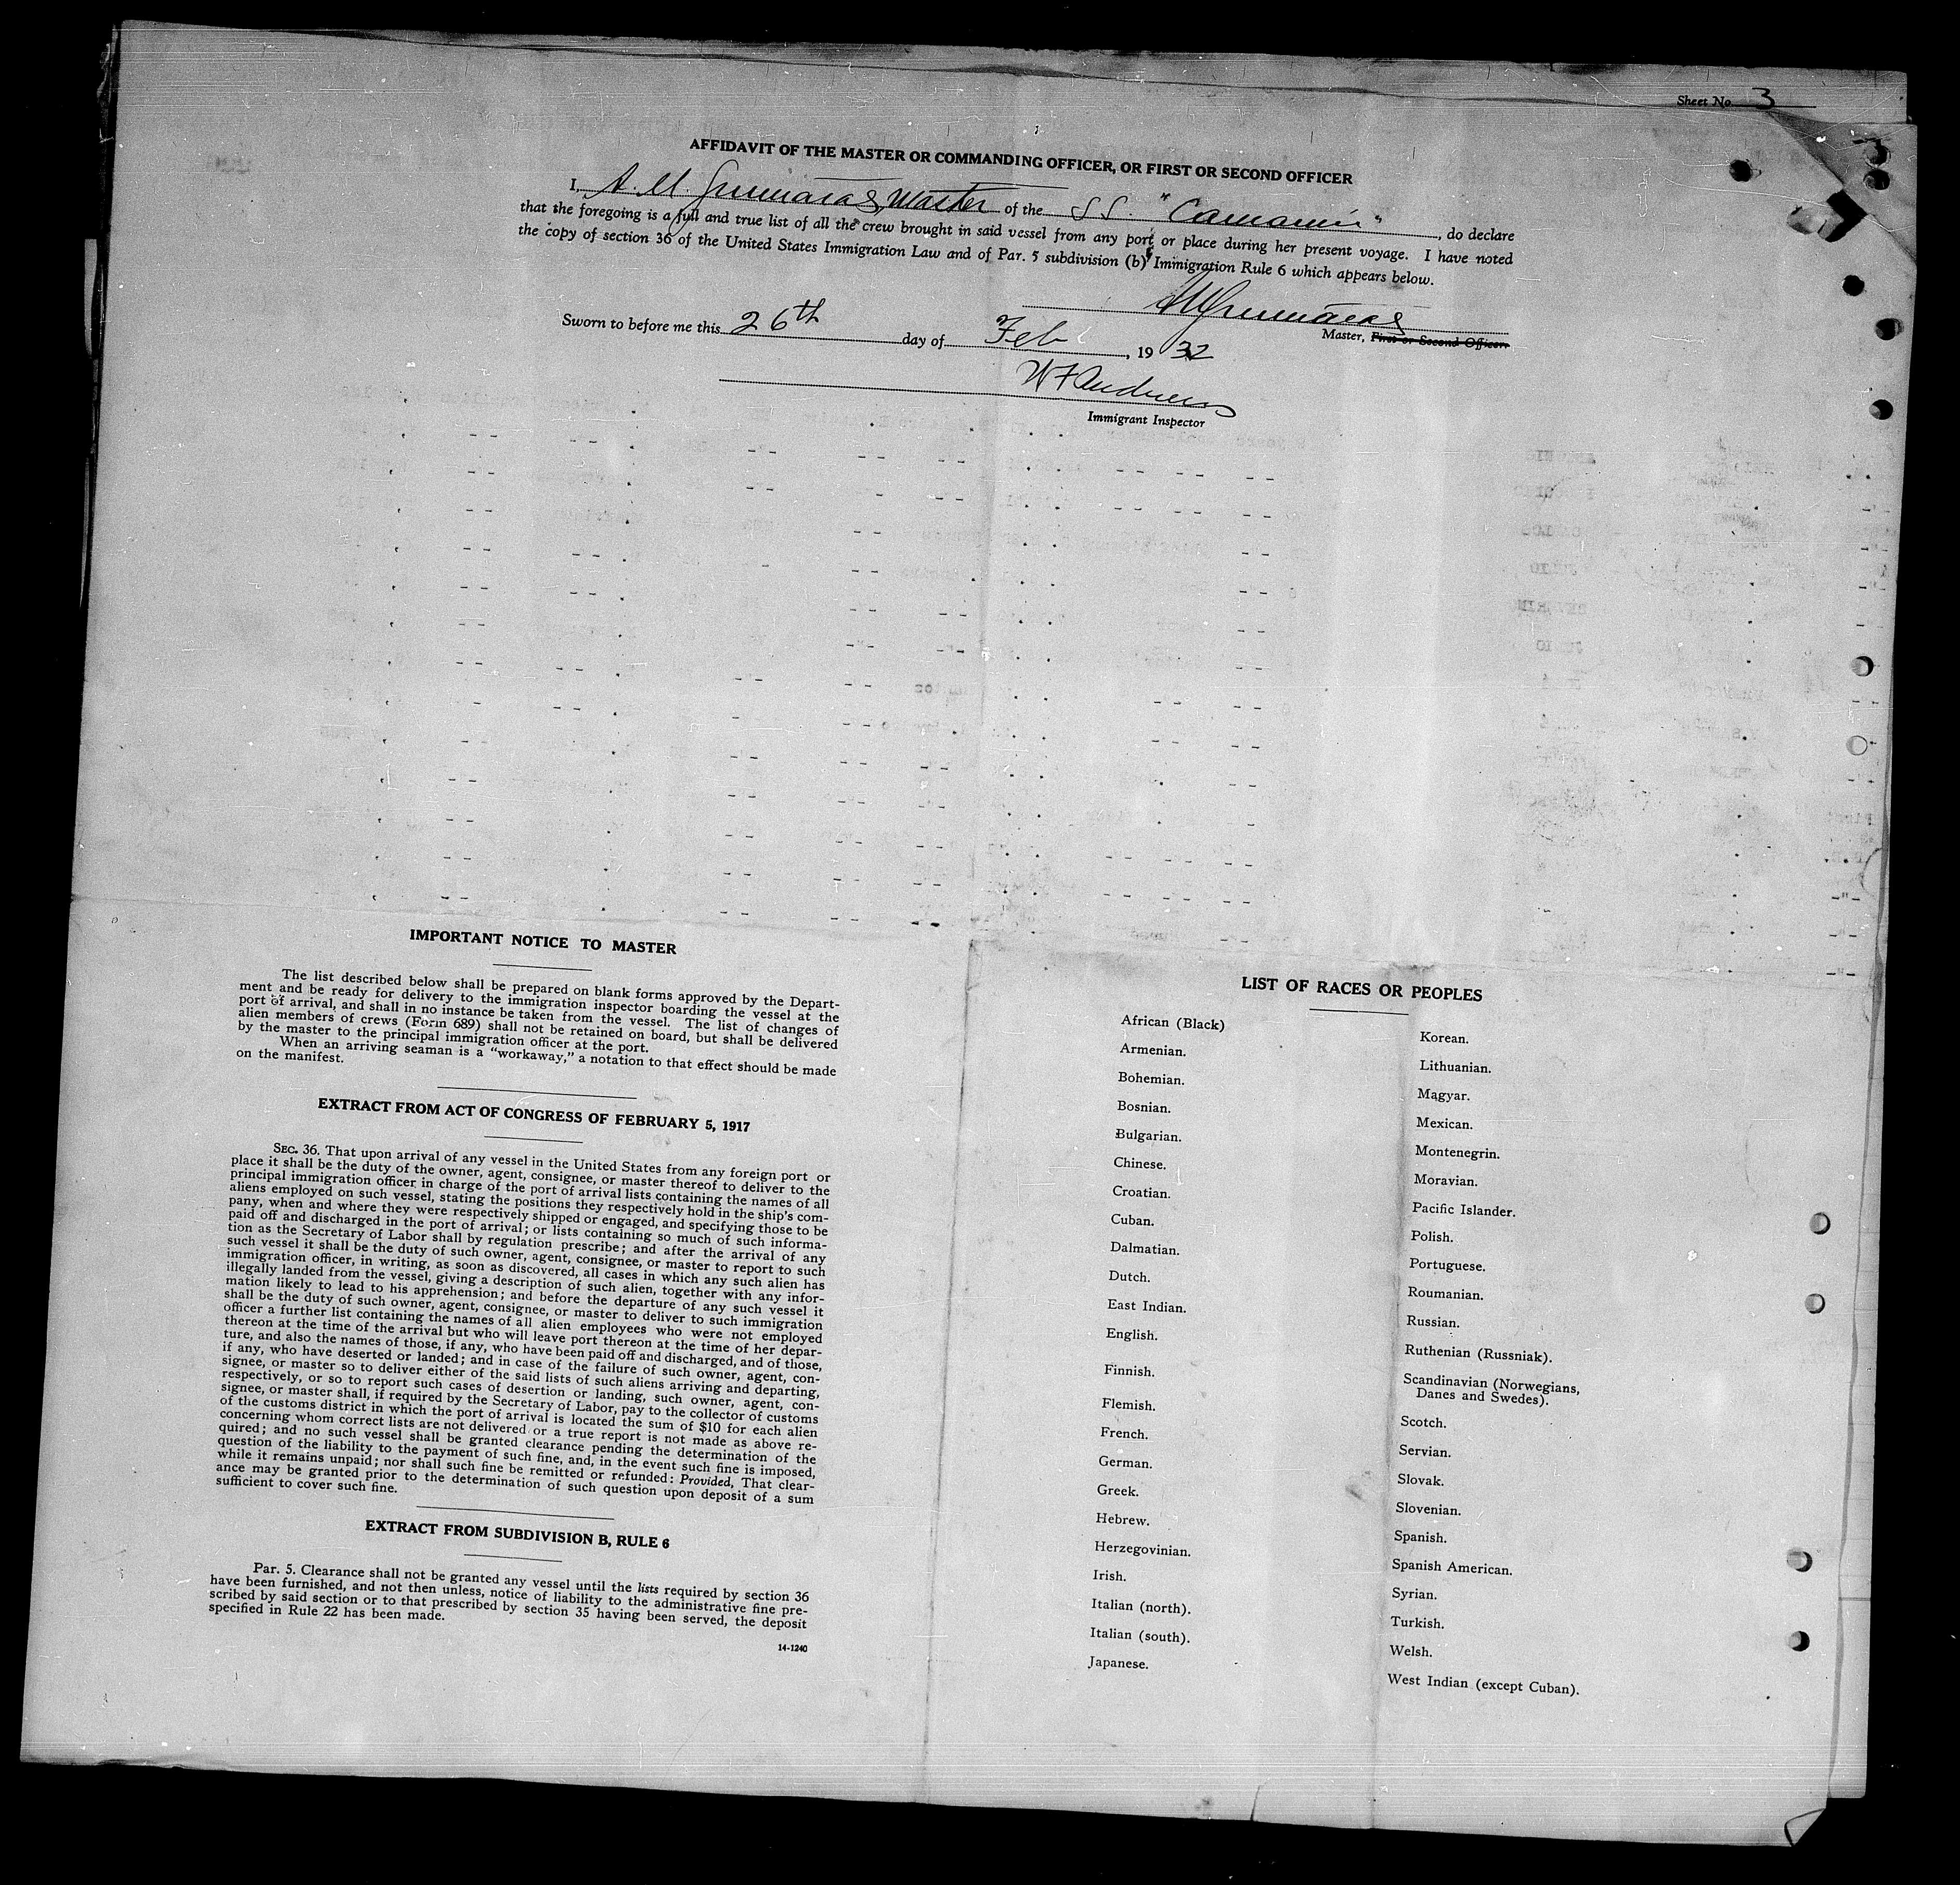 Sheet No. 3
AFFIDAVIT OF THE MASTER OR COMMANDING OFFICER, OR FIRST OR SECOND OFFICER
I, A. M. Master of the SS. " ", do declare
that the foregoing is a full and true list of all the crew brought in said vessel from any port or place during her present voyage. I have noted
the copy of section 36 of the United States Immigration Law and of Par. 5 subdivision (b) Immigration Rule 6 which appears below.
Master, First or Second Officer.
Sworn to before me this 26th day of Feb, 1932
W F Andrews
Immigrant Inspector
IMPORTANT NOTICE TO MASTER
The list described below shall be prepared on blank forms approved by the Depart-
ment and be ready for delivery to the immigration inspector boarding the vessel at the
port of arrival, and shall in no instance be taken from the vessel. The list of changes of
alien members of crews (Form 689) shall not be retained on board, but shall be delivered
by the master to the principal immigration officer at the port.
When an arriving seaman is a "workaway," a notation to that effect should be made
on the manifest.
EXTRACT FROM ACT OF CONGRESS OF FEBRUARY 5, 1917
SEC. 36. That upon arrival of any vessel in the United States from any foreign port or
place it shall be the duty of the owner, agent, consignee, or master thereof to deliver to the
principal immigration officer in charge of the port of arrival lists containing the names of all
aliens employed on such vessel, stating the positions they respectively hold in the ship's com-
pany, when and where they were respectively shipped or engaged, and specifying those to be
paid off and discharged in the port of arrival; or lists containing so much of such informa-
tion as the Secretary of Labor shall by regulation prescribe; and after the arrival of any
such vessel it shall be the duty of such owner, agent, consignee, or master to report to such
immigration officer, in writing, as soon as discovered, all cases in which any such alien has
illegally landed from the vessel, giving a description of such alien, together with any infor-
mation likely to lead to his apprehension; and before the departure of any such vessel it
shall be the duty of such owner, agent, consignee, or master to deliver to such immigration
officer a further list containing the names of all alien employees who were not employed
thereon at the time of the arrival but who will leave port thereon at the time of her depar-
ture, and also the names of those, if any, who have been paid off and discharged, and of those,
if any, who have deserted or landed; and in case of the failure of such owner, agent, con-
signee, or master so to deliver either of the said lists of such aliens arriving and departing,
respectively, or so to report such cases of desertion or landing, such owner, agent, con-
signee, or master shall, if required by the Secretary of Labor, pay to the collector of customs
of the customs district in which the port of arrival is located the sum of $10 for each alien
concerning whom correct lists are not delivered or a true report is not made as above re-
quired; and no such vessel shall be granted clearance pending the determination of the
question of the liability to the payment of such fine, and, in the event such fine is imposed,
while it remains unpaid; nor shall such fine be remitted or refunded: Provided, That clear-
ance may be granted prior to the determination of such question upon deposit of a sum
sufficient to cover such fine.
EXTRACT FROM SUBDIVISION B, RULE 6
Par. 5. Clearance shall not be granted any vessel until the lists required by section 36
have been furnished, and not then unless, notice of liability to the administrative fine pre-
scribed by said section or to that prescribed by section 35 having been served, the deposit
specified in Rule 22 has been made.
14-1240
LIST OF RACES OR PEOPLES
African (Black)
Armenian.
Bohemian.
Bosnian.
Bulgarian.
Chinese.
Croatian.
Cuban.
Dalmatian.
Dutch.
East Indian.
English.
Finnish.
Flemish.
French.
German.
Greek.
Hebrew.
Herzegovinian.
Irish.
Italian (north).
Italian (south).
Japanese.
Korean.
Lithuanian.
Magyar.
Mexican.
Montenegrin.
Moravian.
Pacific Islander.
Polish.
Portuguese.
Roumanian.
Russian.
Ruthenian (Russniak).
Scandinavian (Norwegians,
Danes and Swedes).
Scotch.
Servian.
Slovak.
Slovenian.
Spanish.
Spanish American.
Syrian.
Turkish.
Welsh.
West Indian (except Cuban).